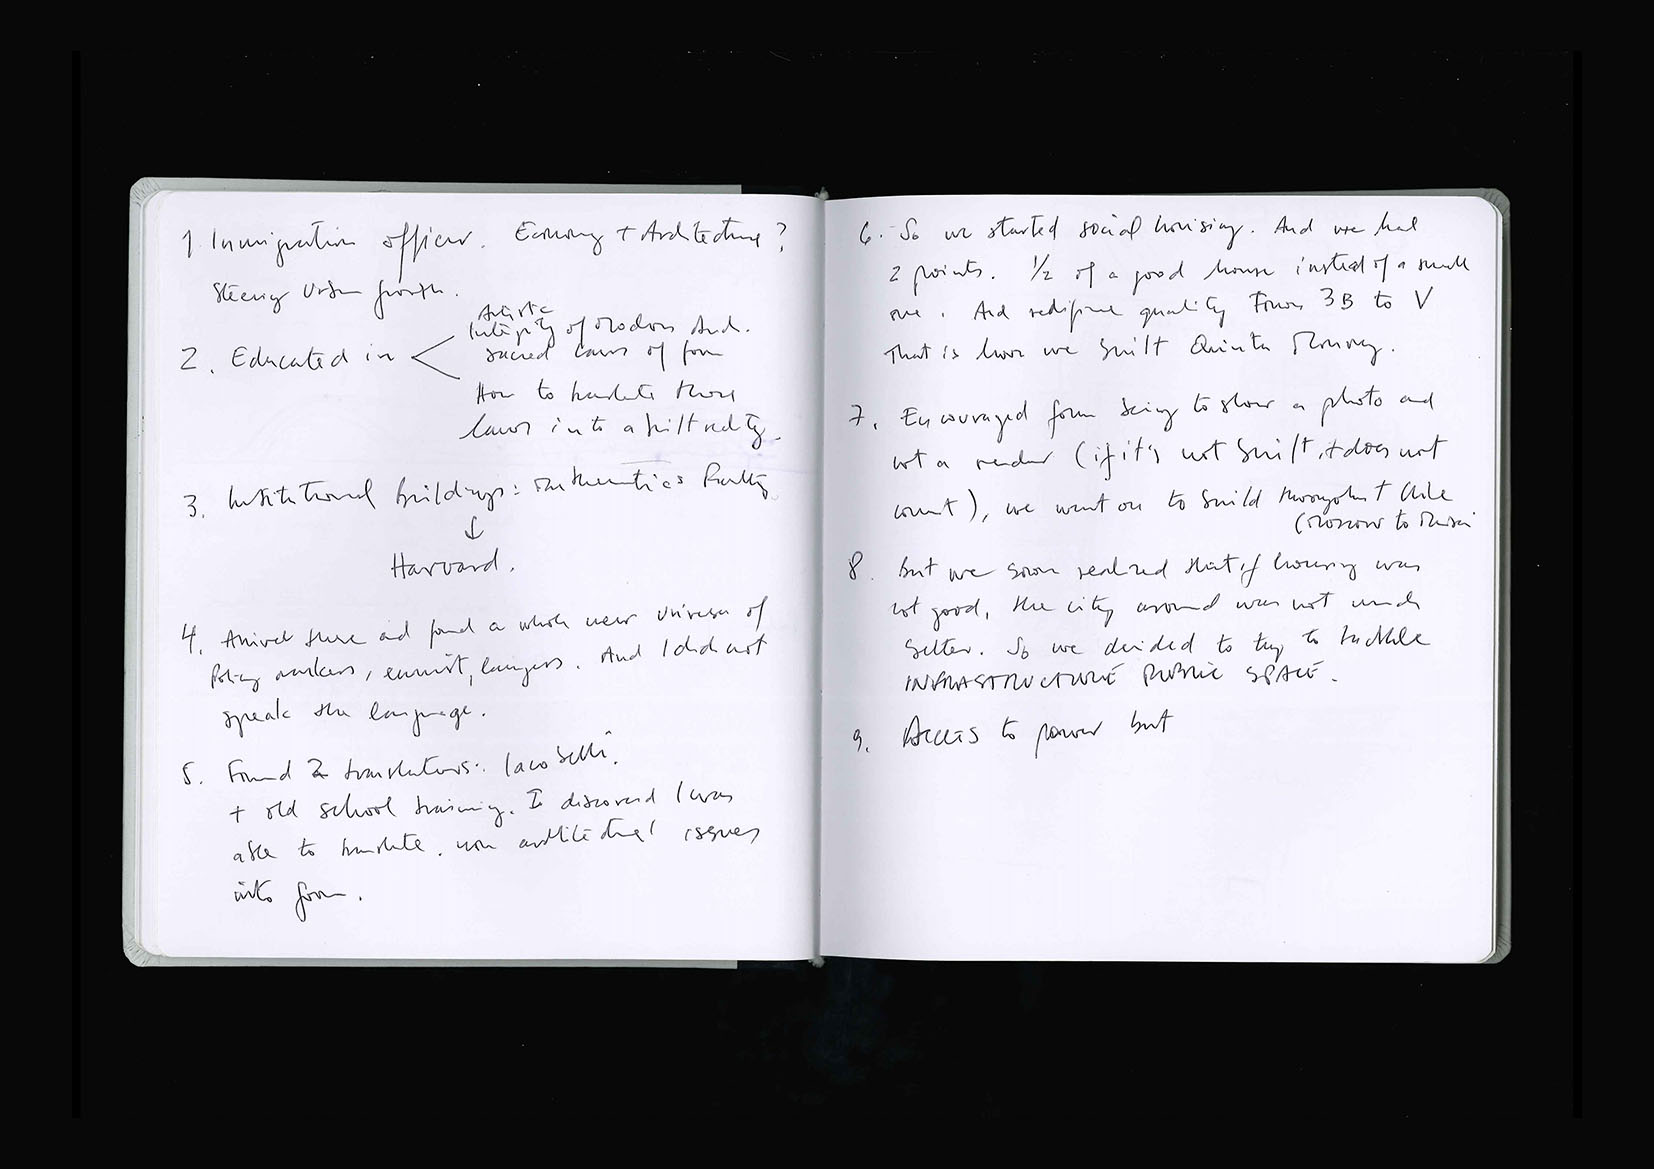 1. Inmigration officer. Economy + Architecture?
Steering Urban growth.
2. Educated in
Artistic
Integrity of Modern Arch.
sacred laws of form
How to translate those
laws into a built reality.
3. Institutional buildings: Mathematics Faculty
↓
Harvard.
4. Arrived there and found a whole new universe of
Policy makers, lawyers. And I did not
speak the language.
5. Found 2 translators: Iacobelli.
+ old school training. I discovered I was
able to translate non architectural issues
into form.
6. So we started social housing. And we had
2 points. 1/2 of a good house instead of a small
one. And redifine quality From 3B to V
That is how we built Quinta Monroy.
7. Encouraged for being to show a photo and
not a render (if it's not built, it does not
count), we went on to build throughout Chile
(Moscow to
8. But we soon realized that if housing was
not good, the city around was not much
better. So we decided to try to tackle
INFRASTRUCTURE PUBLIC SPACE.
9. Access to power but